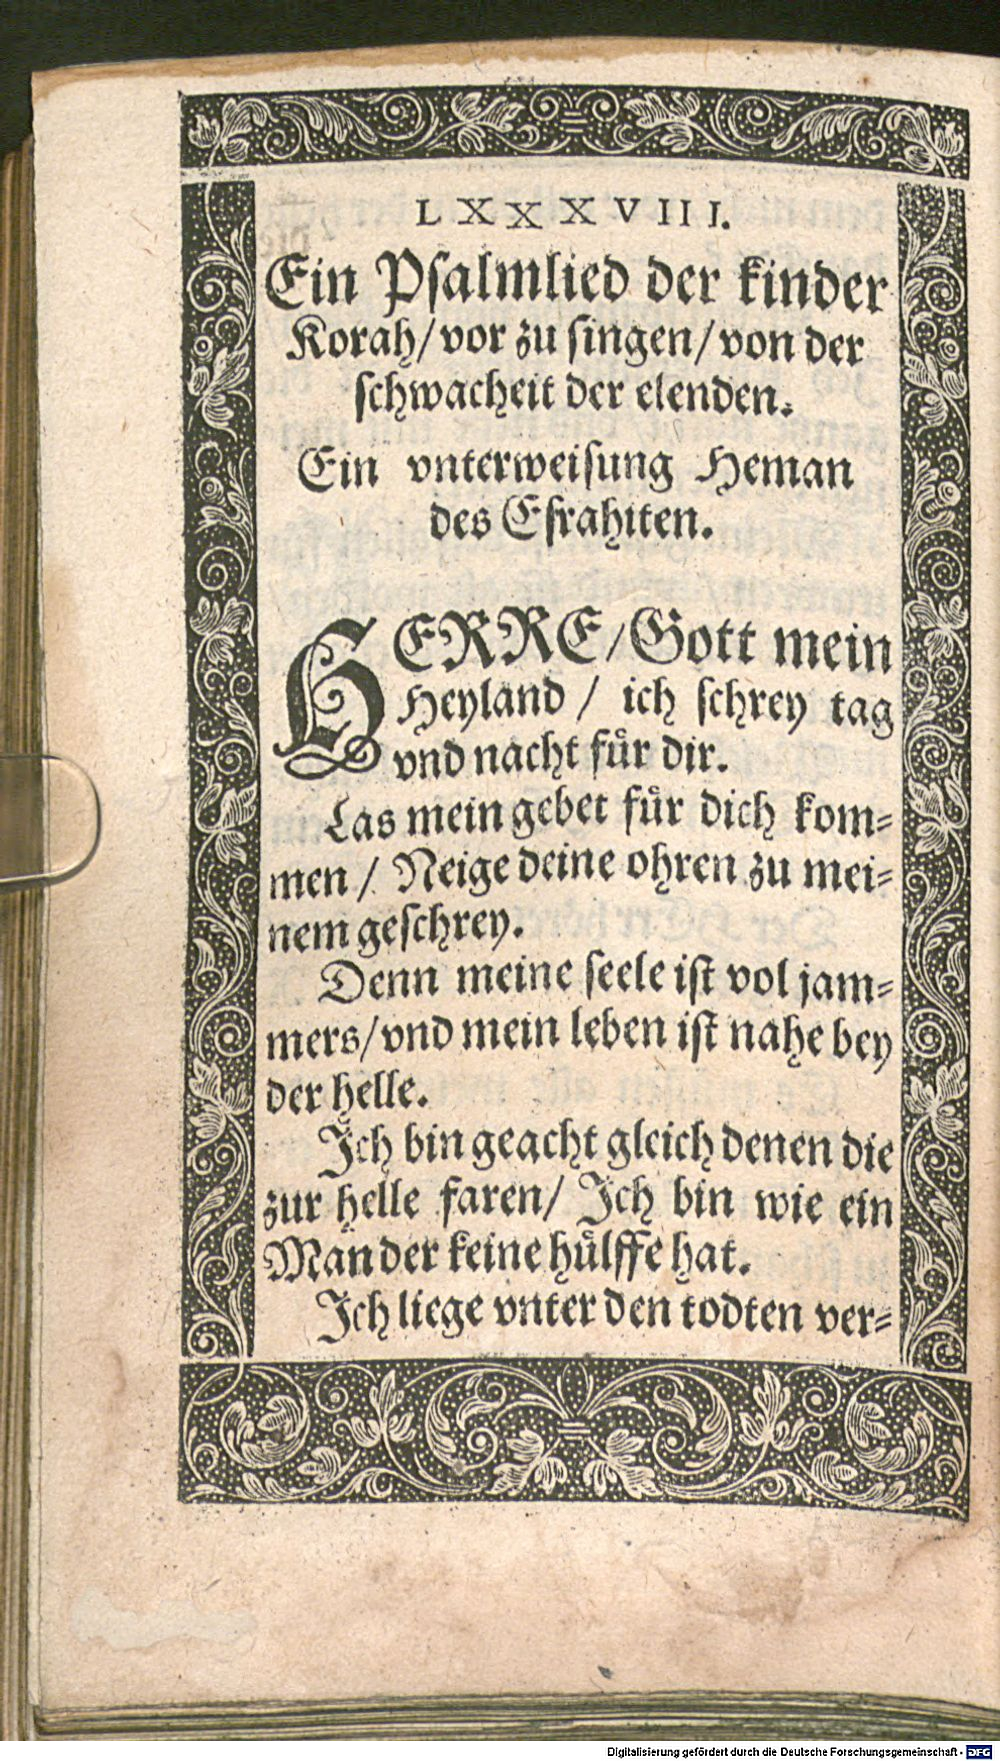 LXXXVIII.
Ein Psalmlied der kinder
Korah/ vor zu singen/ von der
schwacheit der elenden.
Ein vnterweisung Heman
des Esrahiten.
HERRE/ Gott mein
Heyland / ich schrey tag
vnd nacht fuͤr dir.
Las mein gebet fuͤr dich kom⸗
men / Neige deine ohren zu mei⸗
nem geschrey.
Denn meine seele ist vol jam⸗
mers/ vnd mein leben ist nahe bey
der helle.
Ich bin geacht gleich denen die
zur helle faren/ Ich bin wie ein
Man der keine huͤlffe hat.
Ich liege vnter den todten ver⸗
Digitalisierung gefördert durch die Deutsche Forschungsgemeinschaft - DFG